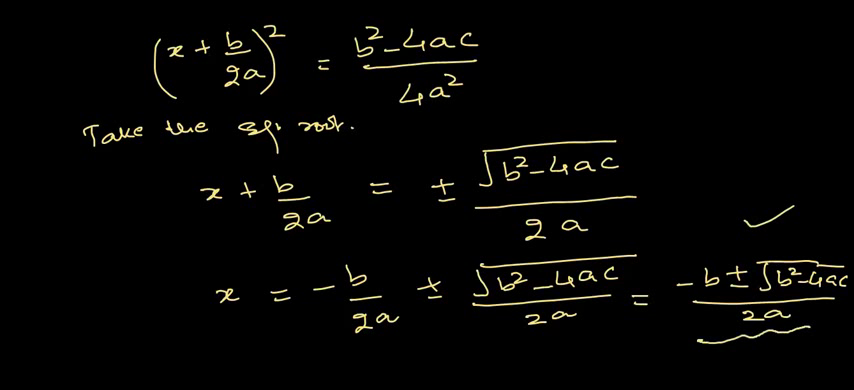 (x + b/2a)² = b²-4ac/4a²
Take the sq. root.
x + b/2a = ± √b²-4ac/2a
x = -b/2a ± √b²-4ac/2a = -b ± √b²-4ac/2a